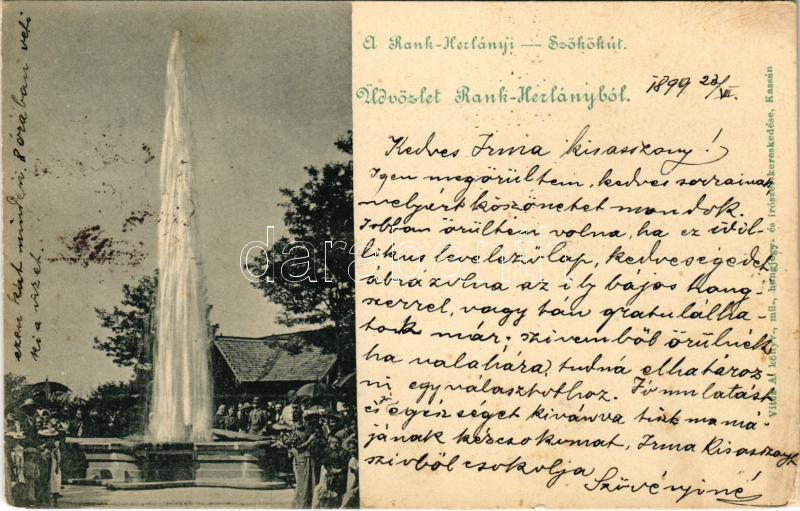 A Rank-Herlányi — Szökőkút.
Üdvözlet Rank-Herlányból.
1899 23/VII.
Kedves Irma kisasszony!
Igen megörültem, kedves sorainak
melyért köszönetet mondok.
Jobban örültem volna, ha ez
levelezőlap, kedveségedet
ábrázolna az ily bájos hang-
szerrel, vagy tán gratulálha-
tok már; szivemből örülnék
ha valahára, tudná elhatároz
ni egyválasztothoz. Jó mulatást
és egésséget kivánva tisz mamá-
jának kezcsokomat, Irma Kisasszonyt
szivből csokolja
Szövényiné
ezen kut minden 8 órában veti
ki a vizet.
Vitéz A. könyv-, mű-, hangjegy- és irószerkereskedése, Kassán
darabanth